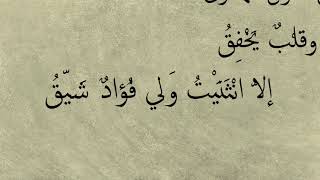 وقلبٌ يَخْفِقُ
إلا انْثَنَيْتُ وَلي فُؤادٌ شَيّقُ